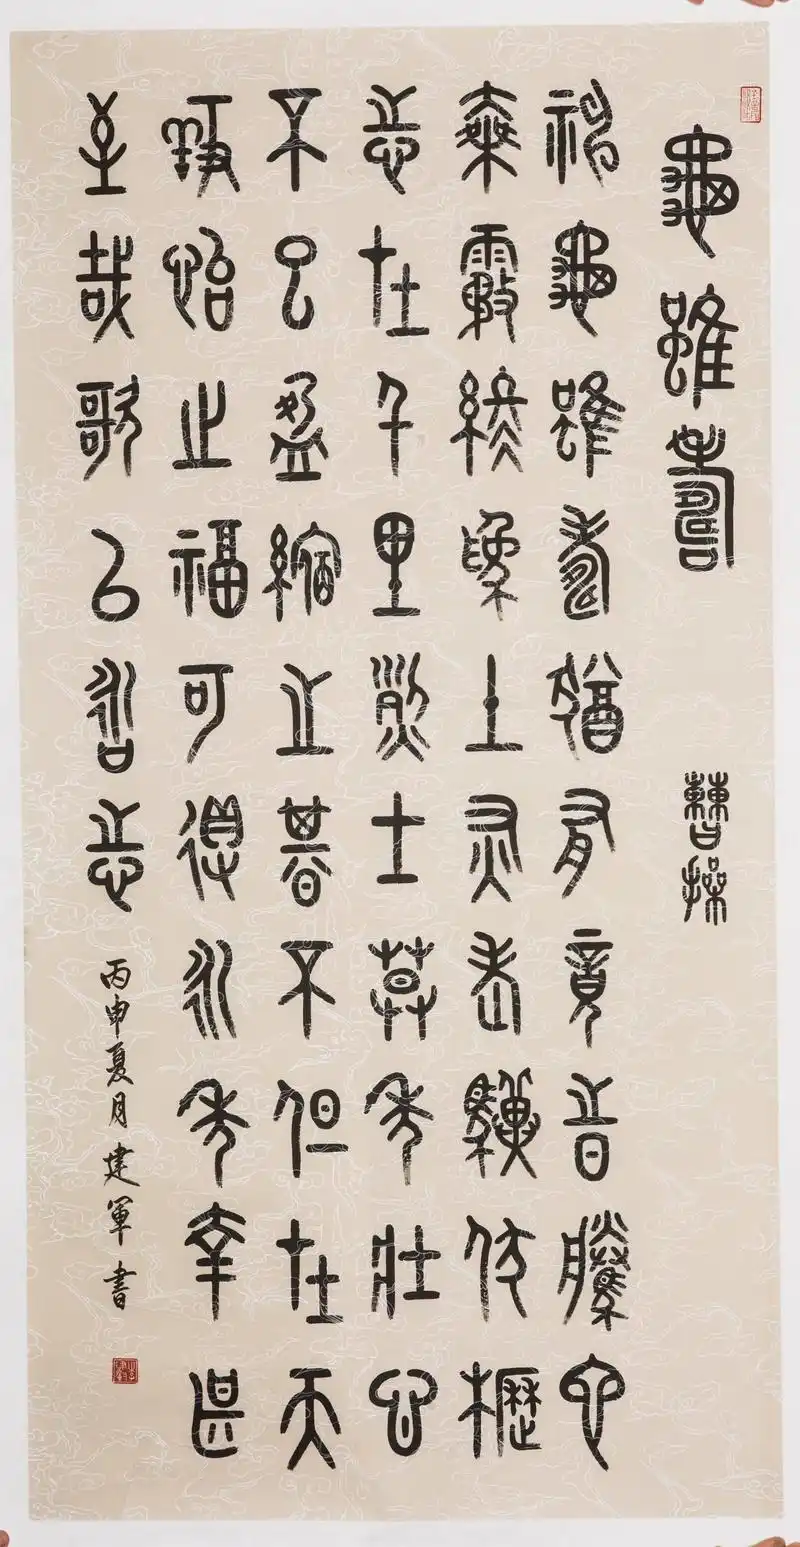 龜雖壽 曹操
神龜雖壽猶有竟時騰蛇
乘霧終為土灰老驥伏櫪
志在千里烈士暮年壯心
不已盈縮之期不但在天
養怡之福可得永年幸甚
至哉歌以詠志
丙申夏月建軍書